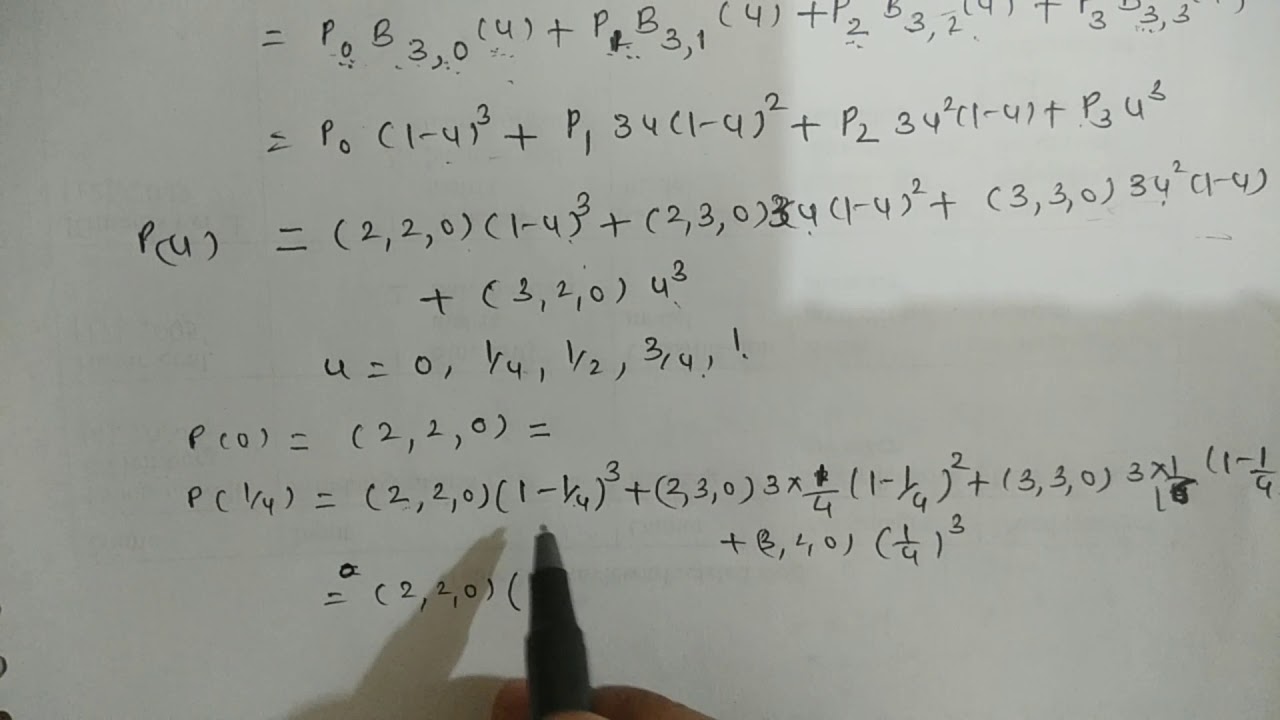 = P₀ B₃,₀(u) + P₁ B₃,₁(u) + P₂ B₃,₂(u) + P₃ B₃,₃
= P₀ (1-u)³ + P₁ 3u(1-u)² + P₂ 3u²(1-u) + P₃ u³
P(u) = (2,2,0)(1-u)³ + (2,3,0)3u(1-u)² + (3,3,0)3u²(1-u)
+ (3,2,0) u³
u = 0, 1/4, 1/2, 3/4, 1.
P(0) = (2,2,0) =
P(1/4) = (2,2,0)(1-1/4)³ + (2,3,0) 3×1/4 (1-1/4)² + (3,3,0) 3×1/16 (1-1/4
+ (3,2,0) (1/4)³
= (2,2,0)(